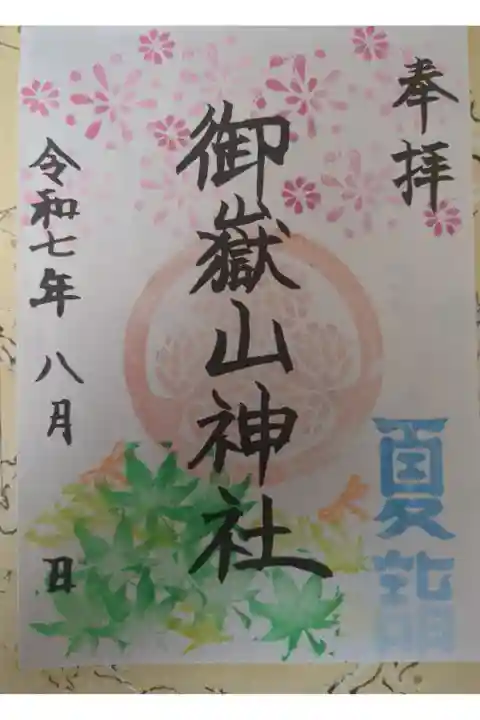 奉拝
御嶽山神社
令和七年 八月 日
夏詣